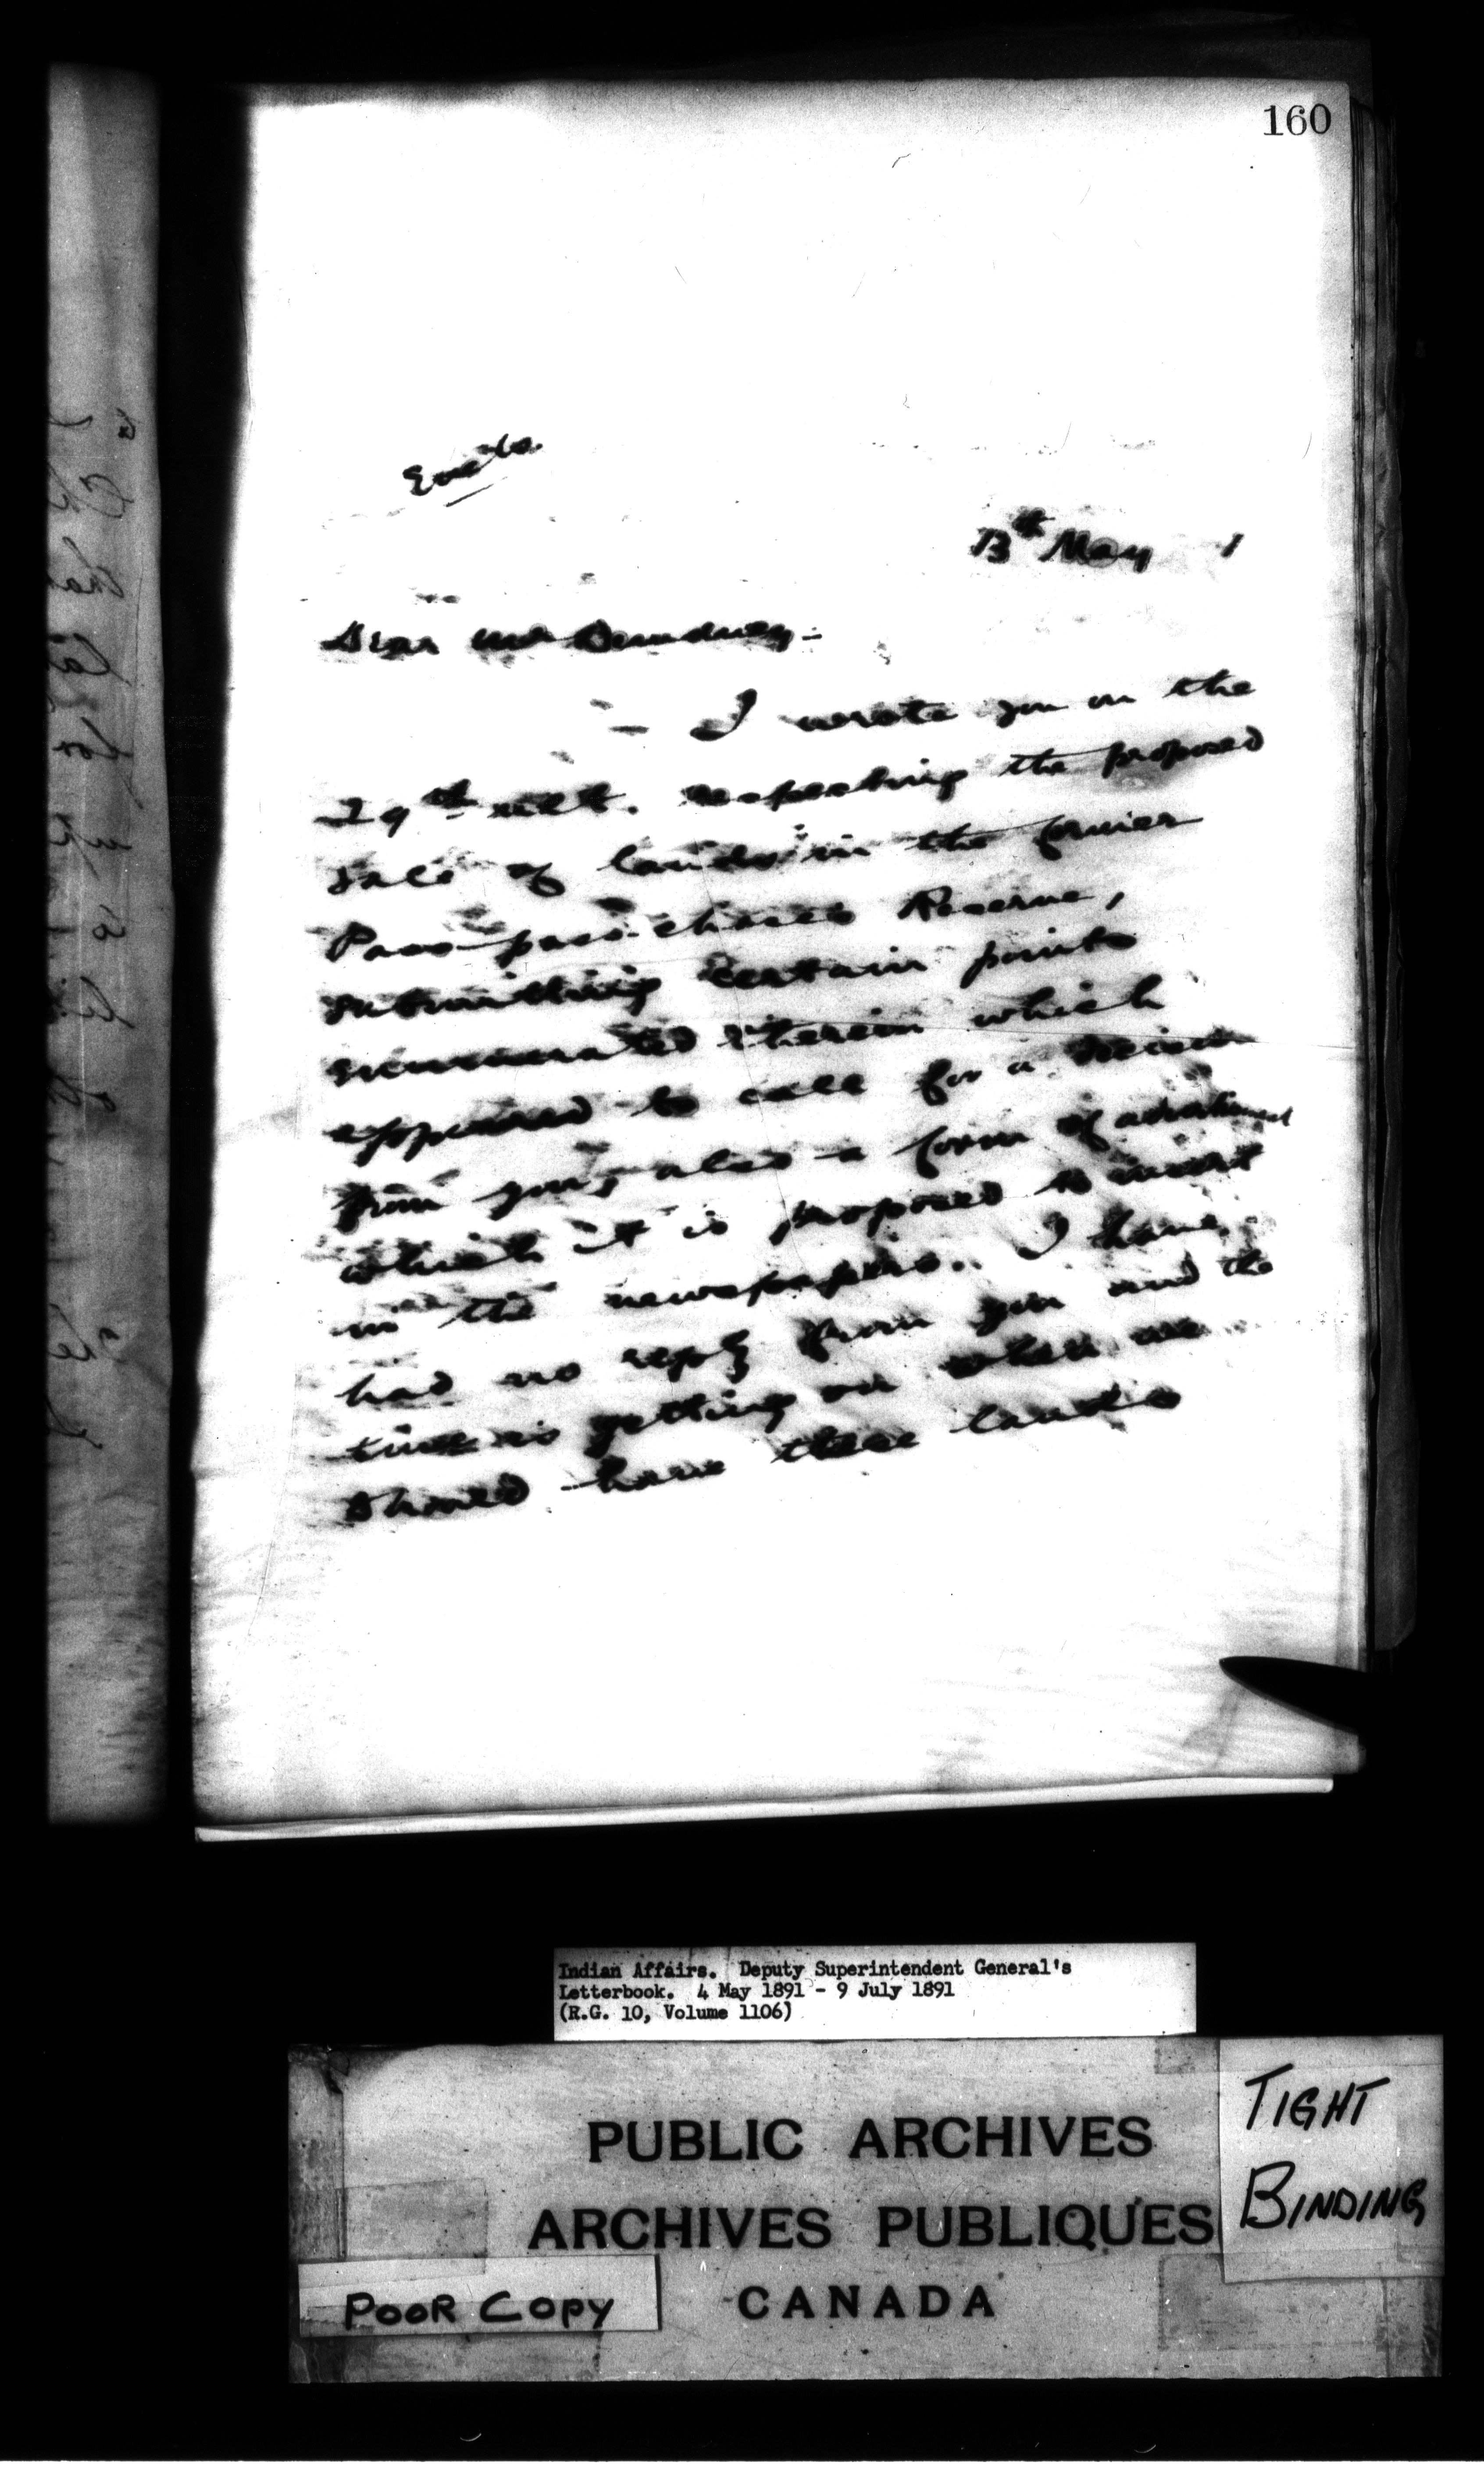 160
13th May 1
Dear Mr Dewdney:-
I wrote you on the
29th ult. respecting the proposed
sale of lands in the former
Pass-pass-chases Reserve,
submitting certain points
enumerated therein which
appeared to call for a decision
from you, also a form of advertisement
which it is proposed to insert
in the newspapers. I have
had no reply from you and the
time is getting on when we
should have these lands
Indian Affairs. Deputy Superintendent General's
Letterbook. 4 May 1891 - 9 July 1891
(R.G. 10, Volume 1106)
PUBLIC ARCHIVES
ARCHIVES PUBLIQUES
CANADA
TIGHT
BINDING
POOR COPY